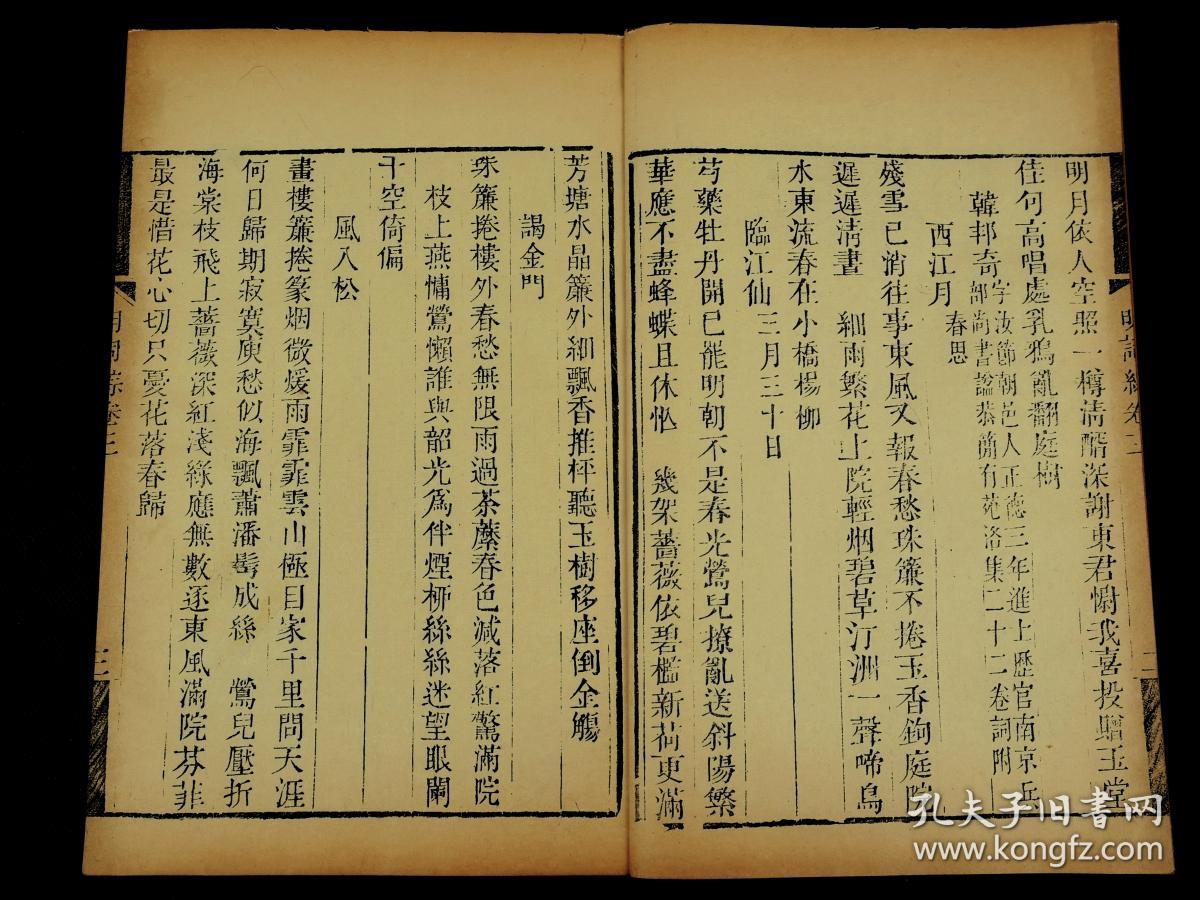 明詞綜卷三
二
明月依人空照一樽清醑深謝東君慰我喜投贈玉堂
佳句高唱處乳鴉亂翻庭樹
韓邦奇字汝節朝邑人正德三年進士歷官南京兵
部尚書諡恭簡有苑洛集二十二卷詞附
西江月春思
殘雪已消往事東風又報春愁珠簾不捲玉香鉤庭院
遲遲淸晝　細雨繁花上院輕烟碧草汀洲一聲啼鳥
水東流春在小橋楊柳
臨江仙三月三十日
芍藥牡丹開已罷明朝不是春光鶯兒撩亂送斜陽繁
華應不盡蜂蝶且休忙　幾架薔薇依碧檻新荷更滿
芳塘水晶簾外細飄香推枰聽玉樹移座倒金觴
謁金門
珠簾捲樓外春愁無限雨過荼蘼春色減落紅驚滿院
枝上燕慵鶯懶誰與韶光爲伴煙柳絲絲迷望眼闌
干空倚偏
風入松
畫樓簾捲篆烟微煖雨霏霏雲山極目家千里問天涯
何日歸期寂寞庾愁似海飄蕭潘鬢成絲　鶯兒壓折
海棠枝飛上薔薇深紅淺綠應無數逐東風滿院芬菲
最是惜花心切只憂花落春歸
明詞綜卷三
三
孔夫子旧书网
www.kongfz.com